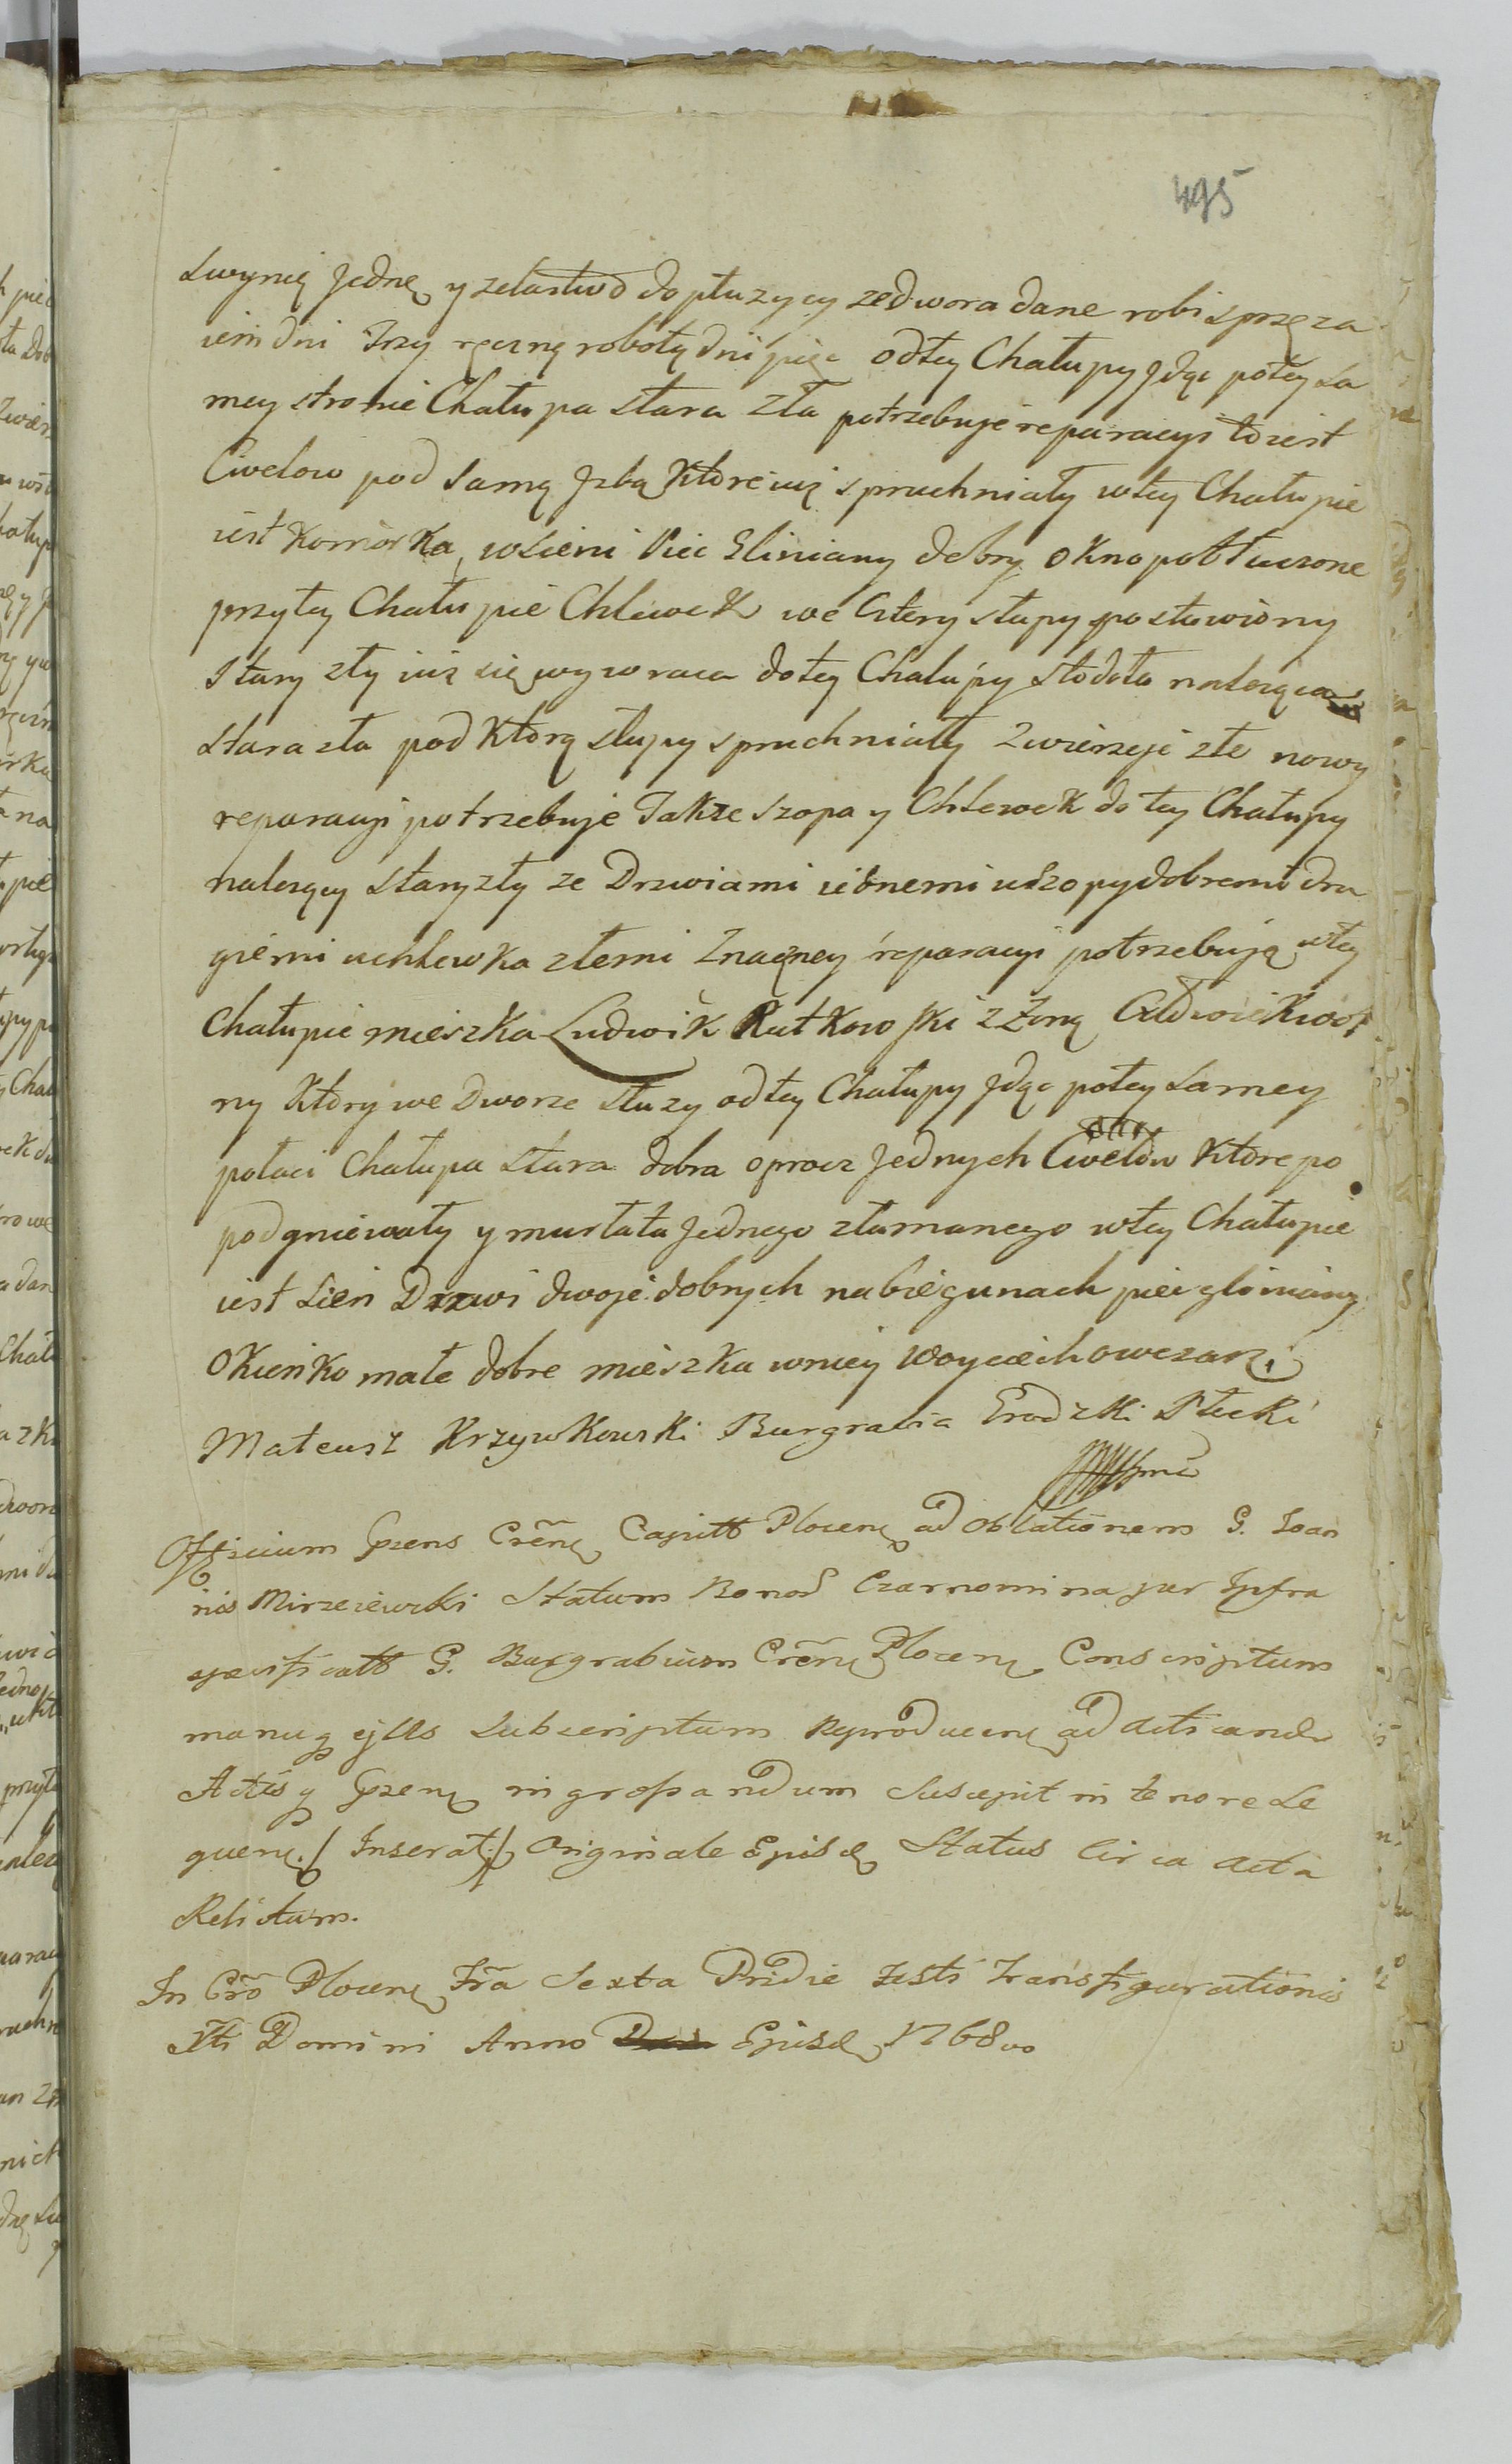 495
Swynię Jednę y zelastwo do płuzycy ze Dwora dane robi sprzęza
iem dni Trzy ręczną robotę dni pięc odtey Chałupy Jdąc potey Sa
mey stronie Chałupa stara zła potrzebuje reparacyi to iest
Cwelow pod Samą Jzbą Ktore iuz spruchniały wtey Chałupie
iest Komorka, w Sieni Piec Gliniany dobry okno potłuczone
przytey Chałupie Chlewek we Cztery słupy postawiony
Stary zły iuz się wywraca do tey Chałupy Stodoła naleząca
Stara zła pod Ktorą słupy spruchniały Zwierzeje złe nowy
reparacyi potrzebuje Takze Szopa y Chlewek do tey Chałupy
nalezący Stary zły ze Drzwiami iednemi uszopy dobremi dru
giemi uchlewka złemi Znaczney reparacyi potrzebują wtey
Chałupie mieszka Ludwik Rutkowski z Zoną Człowiek wol
ny Ktory we Dworze Słuzy od tey Chałupy Jdąc potey Samey
połaci Chałupa Stara dobra oprocz Jednych Cwelow Ktore po
podgniewały y murłata Jednego złamanego wtey Chałupie
iest Sien Drzwi dwoje dobrych na biegunach piec gliniany
Okienko małe dobre mieszka wniey Woyciech owczarz
Mateusz Krzywkowski Burgrabia Grodzki Płocki
mp
Officium Prns Crên Capitt Plocen ad oblationem G. Joan
nis Mirzeiewski Statum Bonor Czarnomina per Infra
specificatt G. Burgrabium Crên Plocen Conscriptum
manuq ejus Subscriptum Reproducen ad acticand
Actisq Prsen ingrossandum Suscepit in tenore Se
quen. / Inserat / Originale Ejusd Status Circa acta
Relictum.
In Crô Plocen Frâ Sexta Pridie Festi Transfigurationis
Xti Domini Anno Ejusd 1768vo